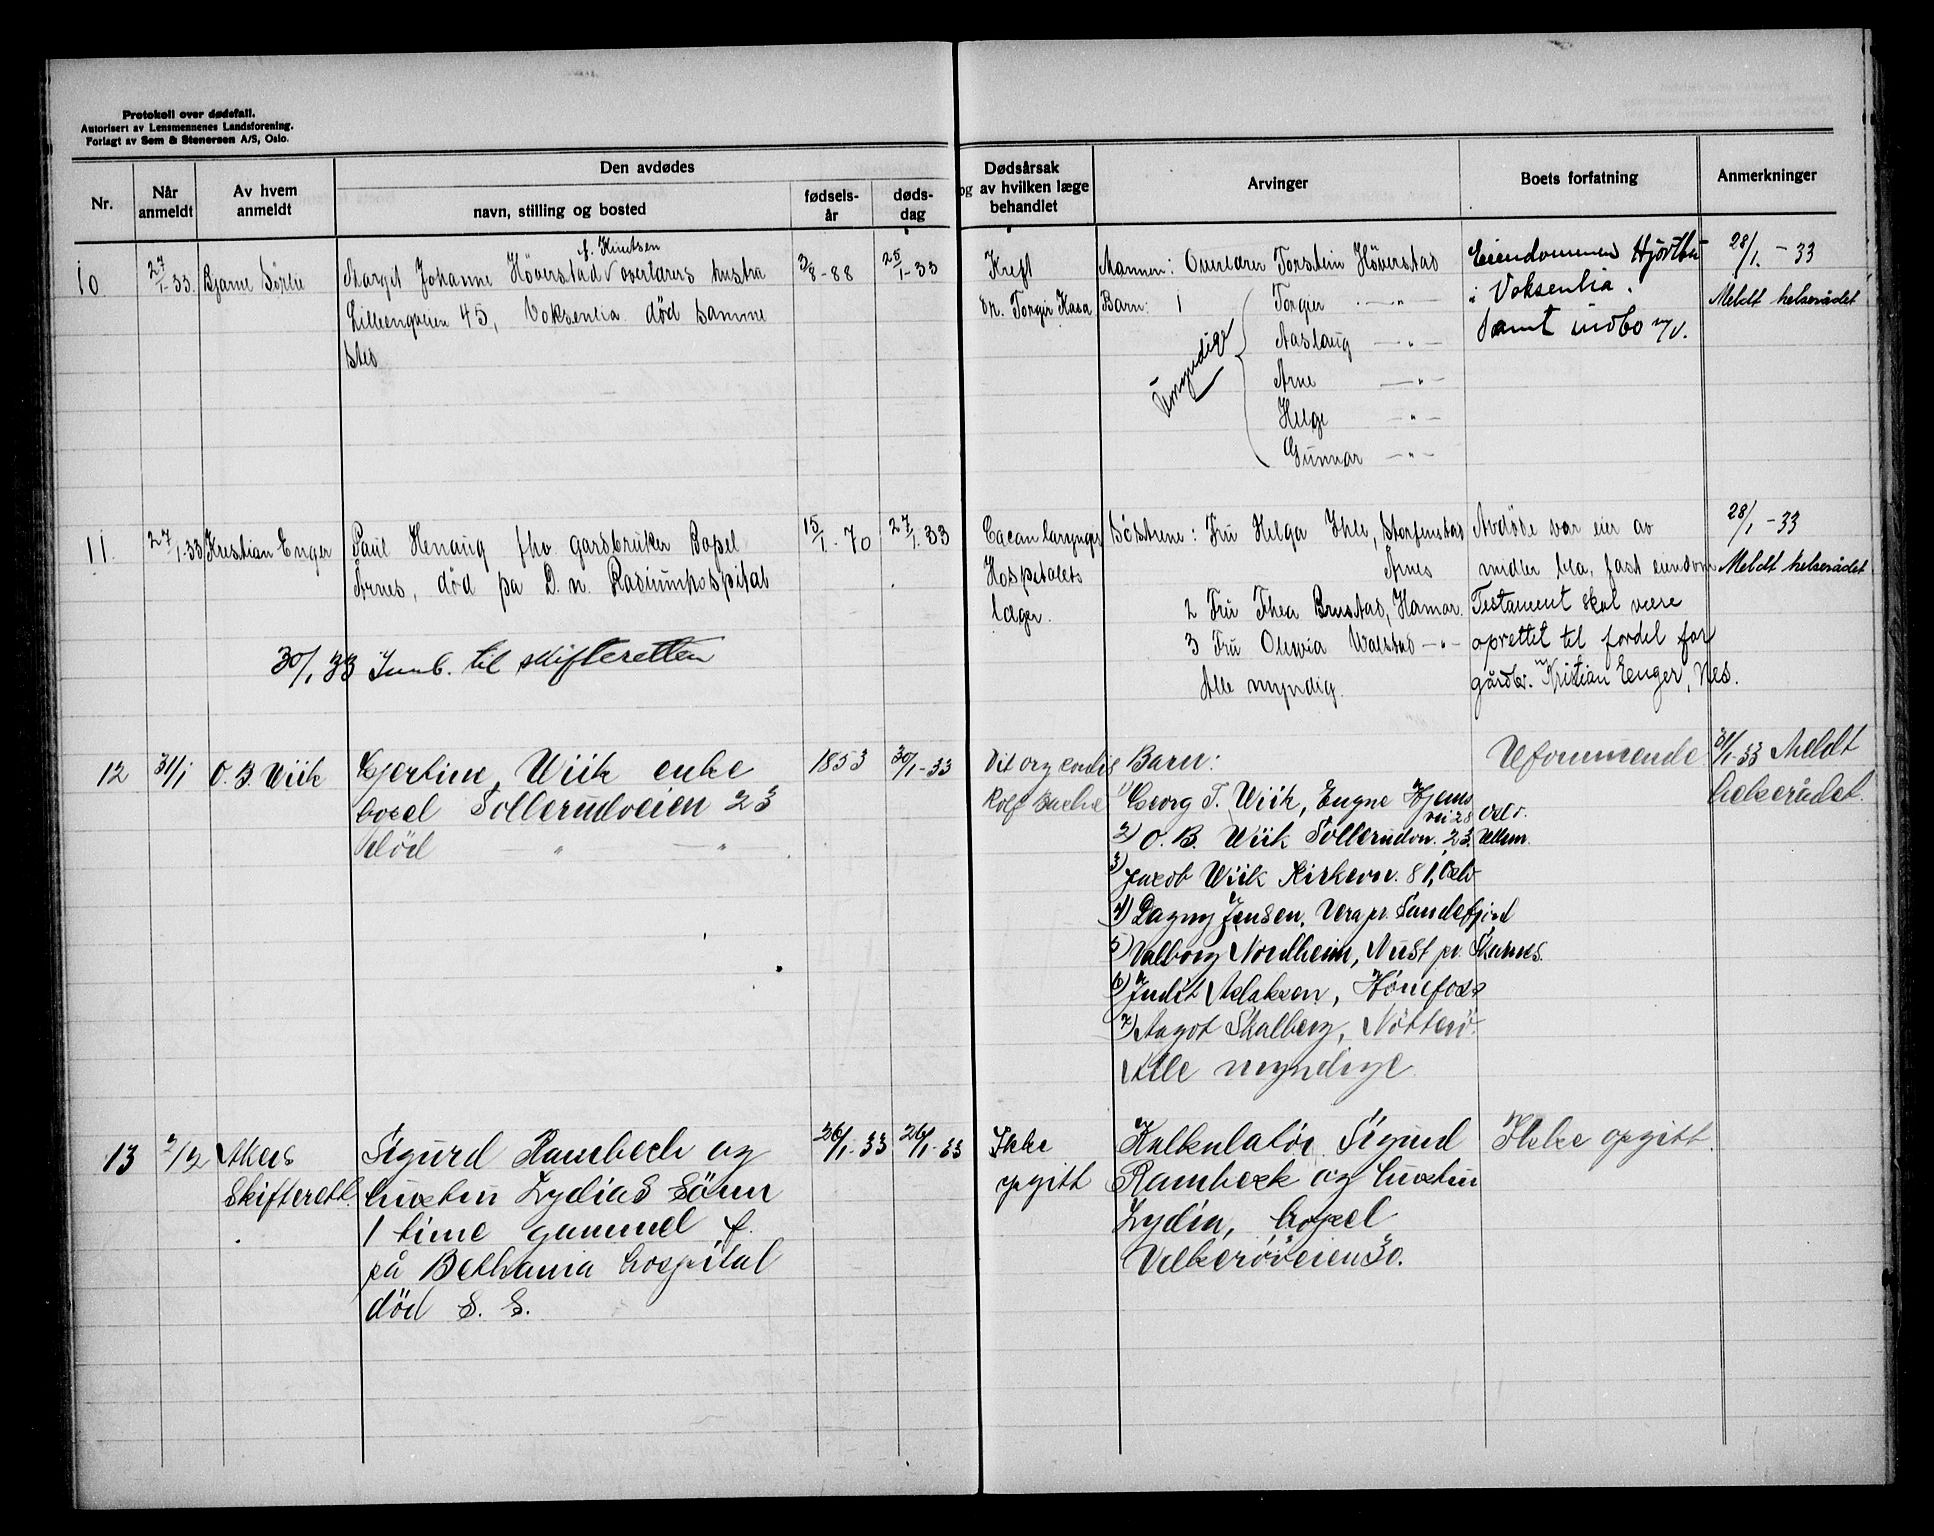 Protokoll over dødsfall.
Autorisert av Lensmennenes Landsforening.
Forlagt av Sem & Stenersen A/S, Oslo.
Nr.
Når anmeldt
Av hvem anmeldt
Den avdødes
navn, stilling og bosted
fødsels-år
døds-dag
Dødsårsak
og av hvilken læge
behandlet
Arvinger
Boets forfatning
Anmerkninger
10
27/1.33.
Bjarne Sørlie
f. Knutsen
Margit Johanne Höverstad v overlærers hustru
45, Voksenlia død samme
sted
3/8-88
25/1-33
Kreft
Dr. Torgir Kasa
Mannen: Overlærer Torstein Höverstad
Barn: 1 Torgier —"—
Aaslaug —"—
Arne —"—
Helge —"—
Gunnar —"—
Umyndige
Eiendommen Hjørtbu
i Voksenlia.
Samt indbo m/v.
28/1.-33
Meldt helserådet
11.
27/1.33
Kristian Enger
Paul Henaug fhv gardbruker Bopel
Årnes, død på D. n. Radiumhospital
30/1 33 Innb. til skifteretten
15/1-70
27/1.33
Hospitalets
læger.
Søstrene: Fru Helga Ihle,
Årnes
2 Fru Thea Brustad, Hamar.
3 Fru Olivia Walstad —"—
Alle myndig.
Avdöde var eier av
midler bla. fast eiendom
Testament skal være
oprettet til fordel for
gårdbr. Kristian Enger, Nes.
28/1-33
Meldt helserådet
12
31/1
O. B. Wiik
Gjertine Wiik enke
bopel Tollerudveien 23
død —"— —"—
1853
30/1-33
Vit org cordis
Rolf
Barn:
1) Georg T. Wiik, Hjems
vei 28 Oslo.
2) O. B. Wiik Tollerudvn. 23. Ullern.
3) Jacob Wiik Kirkevn. 81, Oslo
4) Dagny Jensen, Vera pr. Sandefjord
5) Valborg Nordheim, pr. Skarnes.
6) Judit Aslaksen, Hönefoss
7) Aagot Skalberg, Nötterö.
Alle myndige
Uformuende
31/1-33 Meldt
helserådet.
13
2/2
Akers
Skifterett.
Sigurd Rambech og
hustru Lydias sönn
1 time gammel f.
på Bethania hospital
død S. S.
26/1-33
26/1-33
Ikke
opgitt
Kalkulatør Sigurd
Rambeck og hustru
Lydia, bopel
Vækerøveien 30.
Ikke opgitt.